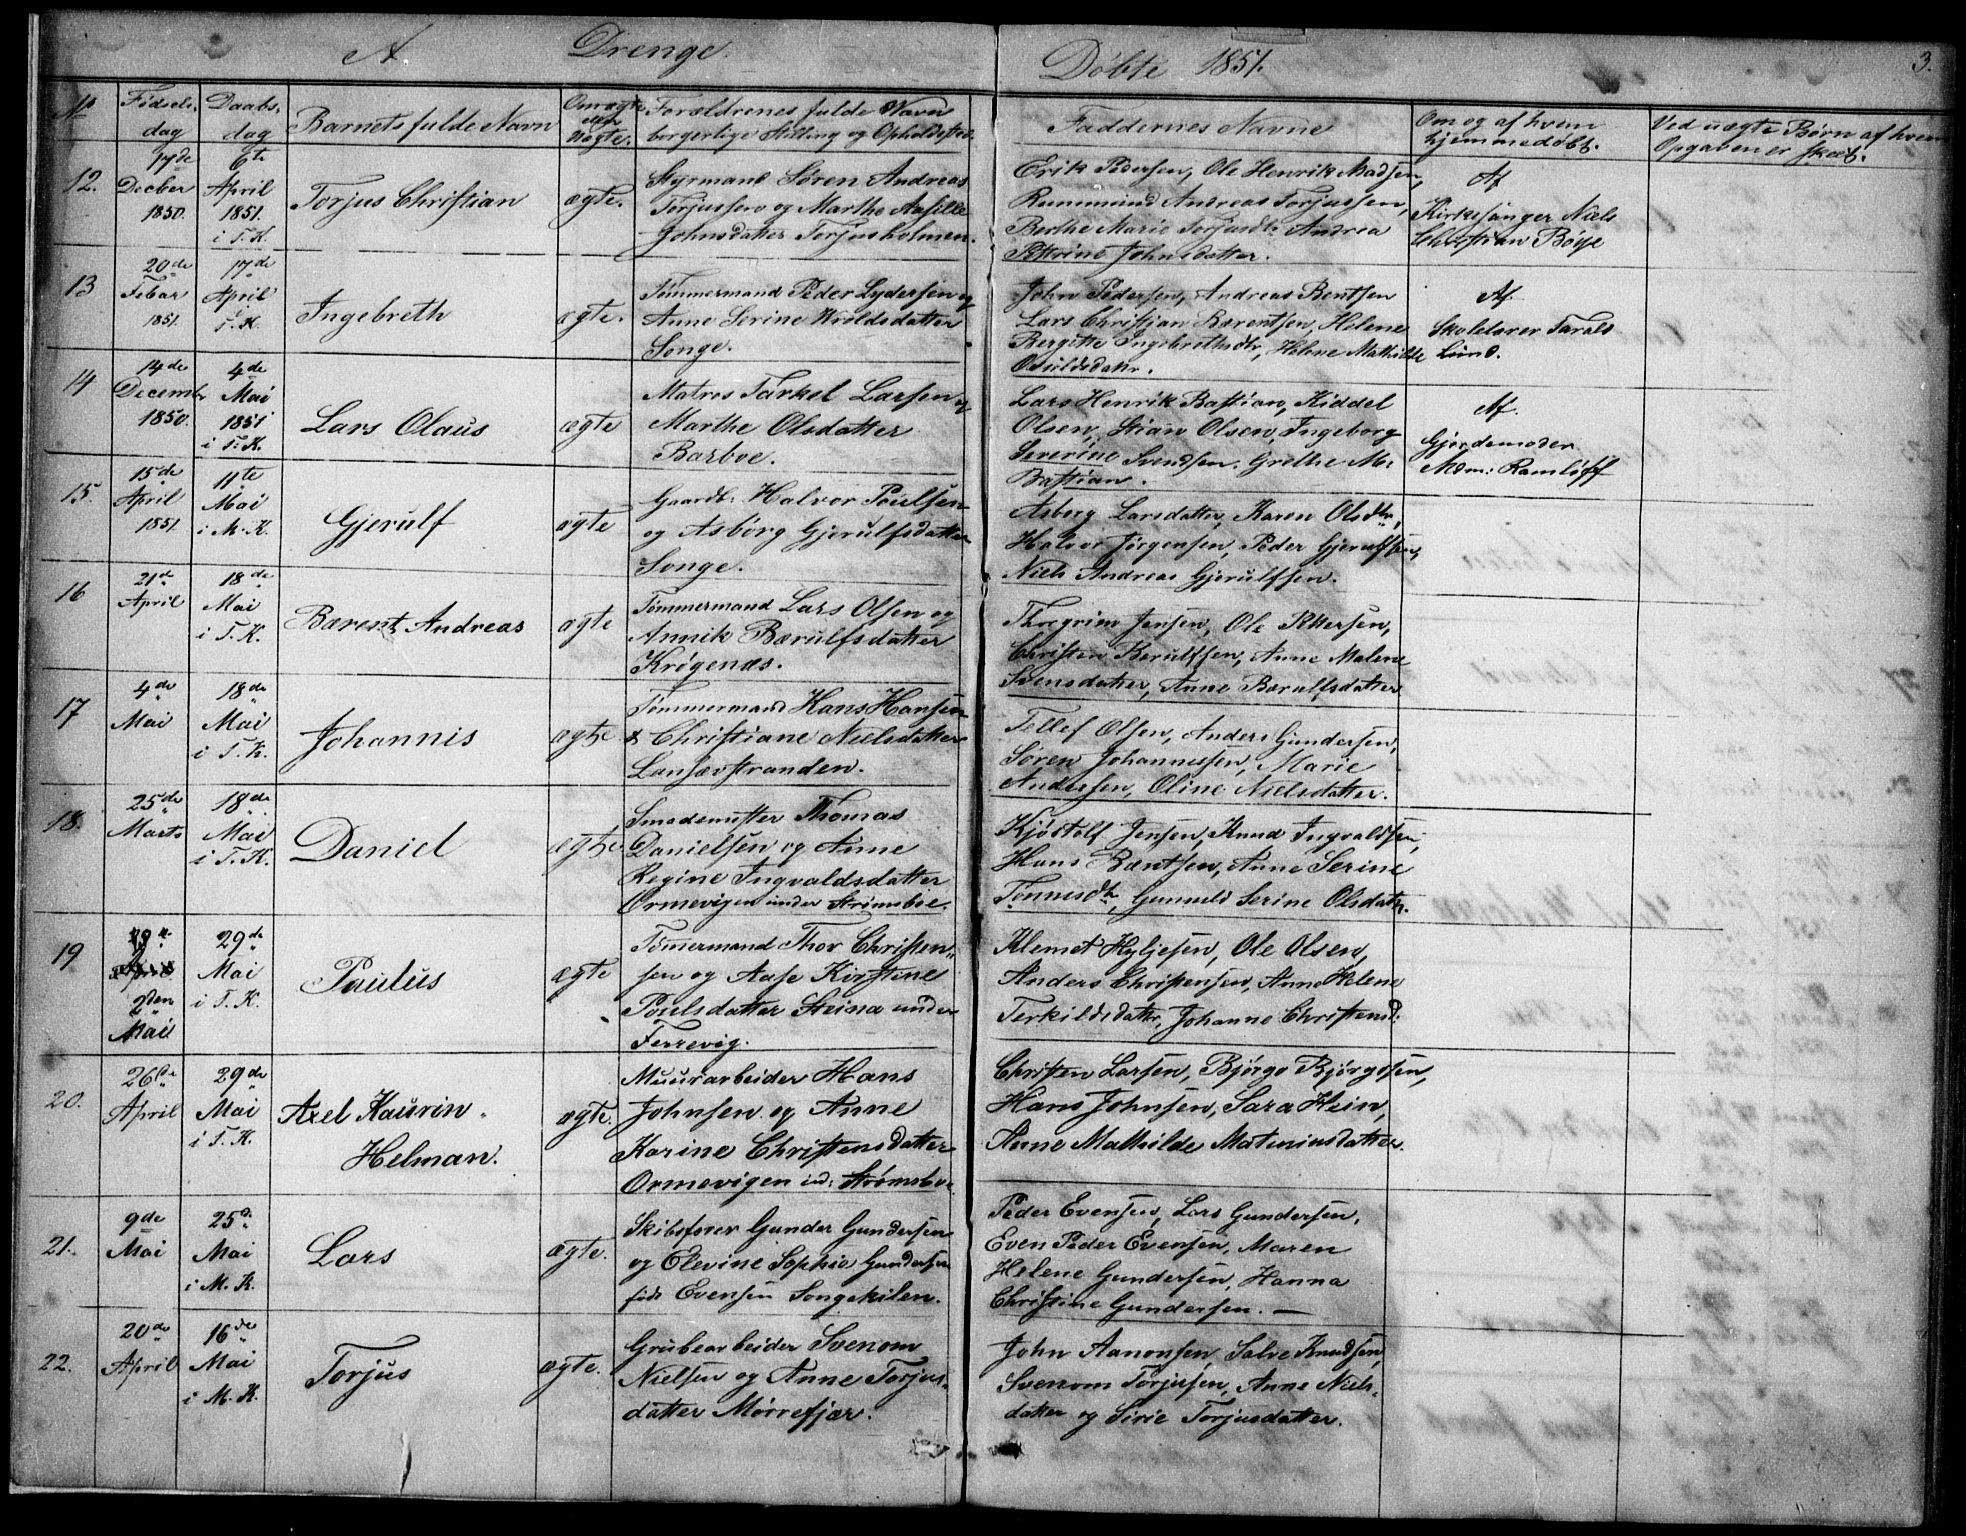 A Drenge. Døbte 1851. 3.
No Fødselsdag Daabsdag Barnets fulde Navn Om ægte eller uægte. Forældrenes fulde Navn borgerlige Stilling og Opholdssted. Faddernes Navne Om og af hvem hjemmedøbt. Ved uægte Børn af hvem Opgaven er skeet.
12. 17de Decber 1850. 6te April 1851. i T. K. Torjus Christian ægte.
Styrmand Søren Andreas
Torjussen og Marthe
Johnsdatter Torjusholmen.
Erik Pedersen, Ole Henrik Madsen,
Andreas Torjussen,
Berthe Marie Torjusdtr Andrea
Pettrine Johnsdatter.
Af
Kirkesanger Niels
Christian Bøye
13 20de Febar 1851. 17de April T. K. Ingebreth ægte.
Tømmermand Peder Lydersen og
Anne Serine Wroldsdatter
Songe.
John Pedersen, Andreas Bentsen
Lars Christjan Bærentsen, Helene
Bergitte Ingebrethsdtr, Helene Mathilde
Osuldsdatr.
Af
Skolelærer Tarald
Lund.
14 14de Decembr 1850. 4de Mai 1851 i T. K. Lars Olaus ægte
Matros Tarkel Larsen og
Marthe Olsdatter
Barboe.
Lars Henrik Bastian, Kiddel
Olsen, Stian Olsen, Ingeborg
Severine Svendsen. Grethe M.
Bastian.
Af.
Gjordemoder
Mdm: Ramløff
15. 15de April 1851. 11te Mai i M. K. Gjerulf ægte
Gaardb: Halvor Poulsen
og Asbørg Gjerulfsdatter
Songe.
Asberg Larsdatter, Karen Olsdtr,
Halvor Jørgensen, Peder Gjerulfsen,
Niels Andreas Gjerulfsen.
16 21de April 18de Mai i T. K. Bærent Andreas ægte
Tømmermand Lars Olsen og
Annik Bærulfsdatter
Krøgenæs.
Thorgrim Jensen, Ole Pettersen,
Christen Berulfsen, Anne Malene
Svensdatter, Anne Bærulfsdatter
17 4de Mai 18de Mai i T. K. Johannis ægte
Tømmermand Hans Hansen
& Christiane Nielsdatter
Langsævstranden.
Tellef Olsen, Anders Gundersen,
Søren Johannessen, Marie
Andersen, Oline Nielsdatter.
18. 25de Marts 18de Mai i T. K. Daniel ægte
Smedemester Thomas
Danielsen og Anne
Regine Ingvaldsdatter
Ormevigen under Strømsboe.
Kjøstolf Jensen, Knud Ingvaldsen,
Hans Bentsen, Anne Serine
Tønnesdtr, Gunneld Serine Olsdatr.
19 2den Mai 29de Mai i T. K. Paulus ægte
Tømermand Thor Christen-
sen og Aase Kirstine
Poulsdatter Steina under
Ferrevig.
Klemet Hyljesen, Ole Olsen,
Anders Christensen, Anne Helene
Terkildsdatr, Johanne Christensd.
20. 26de April 29de Mai i T. K. Axel Kaurin Helman. ægte.
Muurarbeider Hans
Johnsen og Anne
Karine Christensdatter
Ormevigen und: Strømsboe
Christen Larsen, Bjørge Bjørgesen,
Hans Johnsen, Sara Hein,
Anne Mathilde Mathiasdatter.
21. 9de Mai 25de Mai i M. K. Lars ægte.
Skibsfører Gunder Gundersen
og Elevine Sophie Gundersen
født Evensen Songekilen.
Peder Evensen, Lars Gundersen,
Even Peder Evensen, Maren
Helene Gundersen, Hanna
Christine Gundersen. —
22. 20de April 16de Mai i M. K. Torjus ægte.
Grubearbeider Svenom
Nielsen og Anne Torjus-
datter Mørrefjær.
John Aanonsen, Salve Knudsen,
Svenom Torjusen, Anne Niels-
datter og Sirie Torjusdatter.